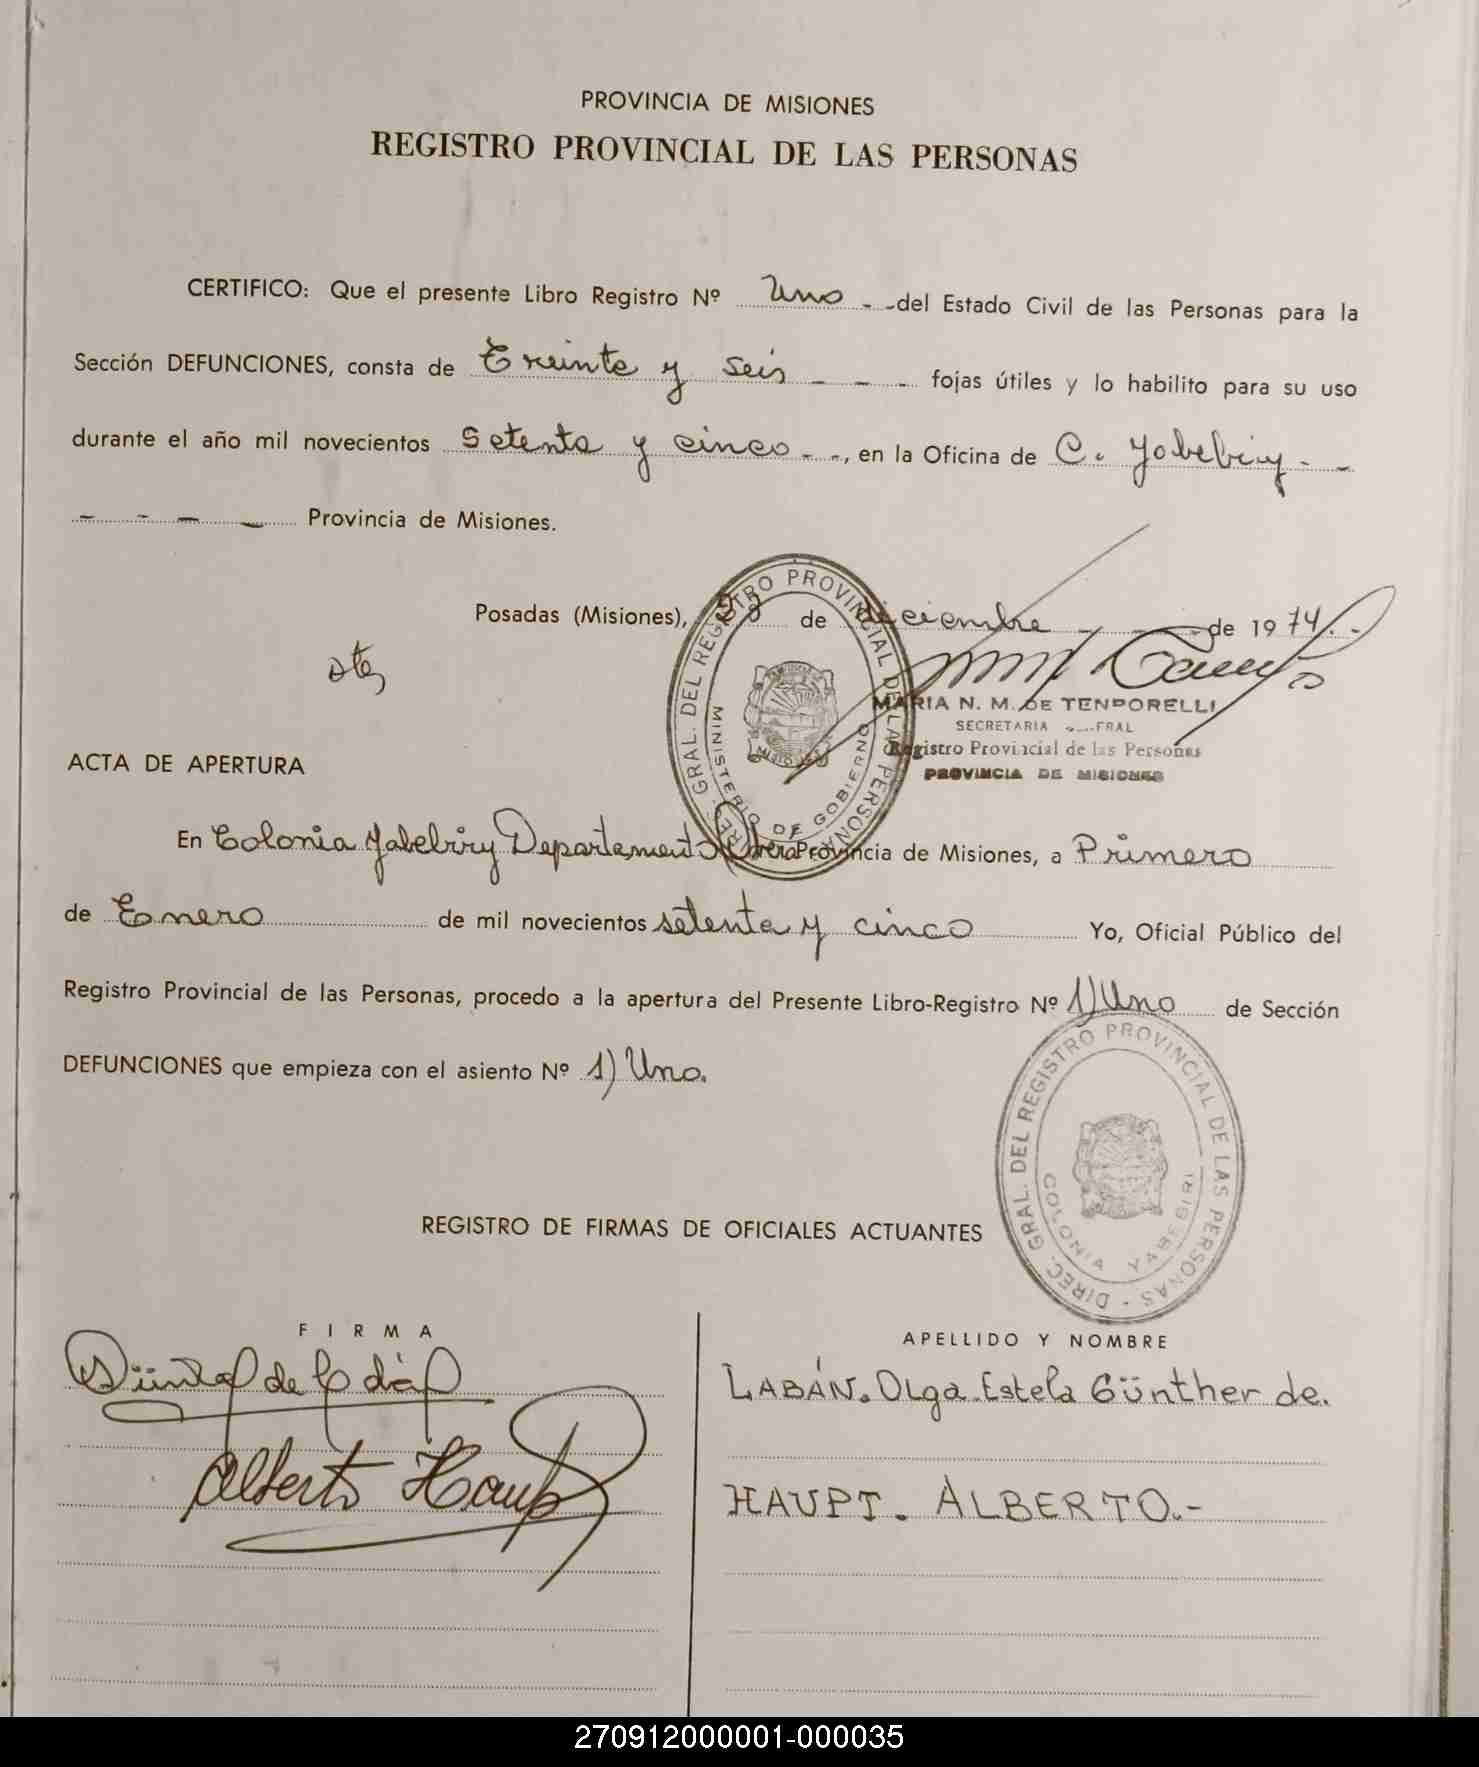 PROVINCIA DE MISIONES
REGISTRO PROVINCIAL DE LAS PERSONAS
CERTIFICO: Que el presente Libro Registro Nº Uno - - del Estado Civil de las Personas para la
Sección DEFUNCIONES, consta de Treinta y seis - - - fojas útiles y lo habilito para su uso
durante el año mil novecientos Setenta y cinco - -, en la Oficina de C. Yabebiry - -
- - - - Provincia de Misiones.
Posadas (Misiones), 23 de diciembre - - - de 1974. -
MARIA N. M. DE TENPORELLI
SECRETARIA
Registro Provincial de las Personas
PROVINCIA DE MISIONES
DIREC. GRAL. DEL REGISTRO PROVINCIAL DE LAS PERSONAS
MINISTERIO DE GOBIERNO
ACTA DE APERTURA
En Colonia Yabebiry Departamento Provincia de Misiones, a Primero
de Enero de mil novecientos setenta y cinco Yo, Oficial Público del
Registro Provincial de las Personas, procedo a la apertura del Presente Libro-Registro Nº 1) Uno de Sección
DEFUNCIONES que empieza con el asiento Nº 1) Uno.
DIREC. GRAL. DEL REGISTRO PROVINCIAL DE LAS PERSONAS -
COLONIA YABEBIRI
REGISTRO DE FIRMAS DE OFICIALES ACTUANTES
FIRMA
APELLIDO Y NOMBRE
LABÁN. OLga Estela Günther de.
Alberto Haupt
HAUPT. ALBERTO.-
270912000001-000035